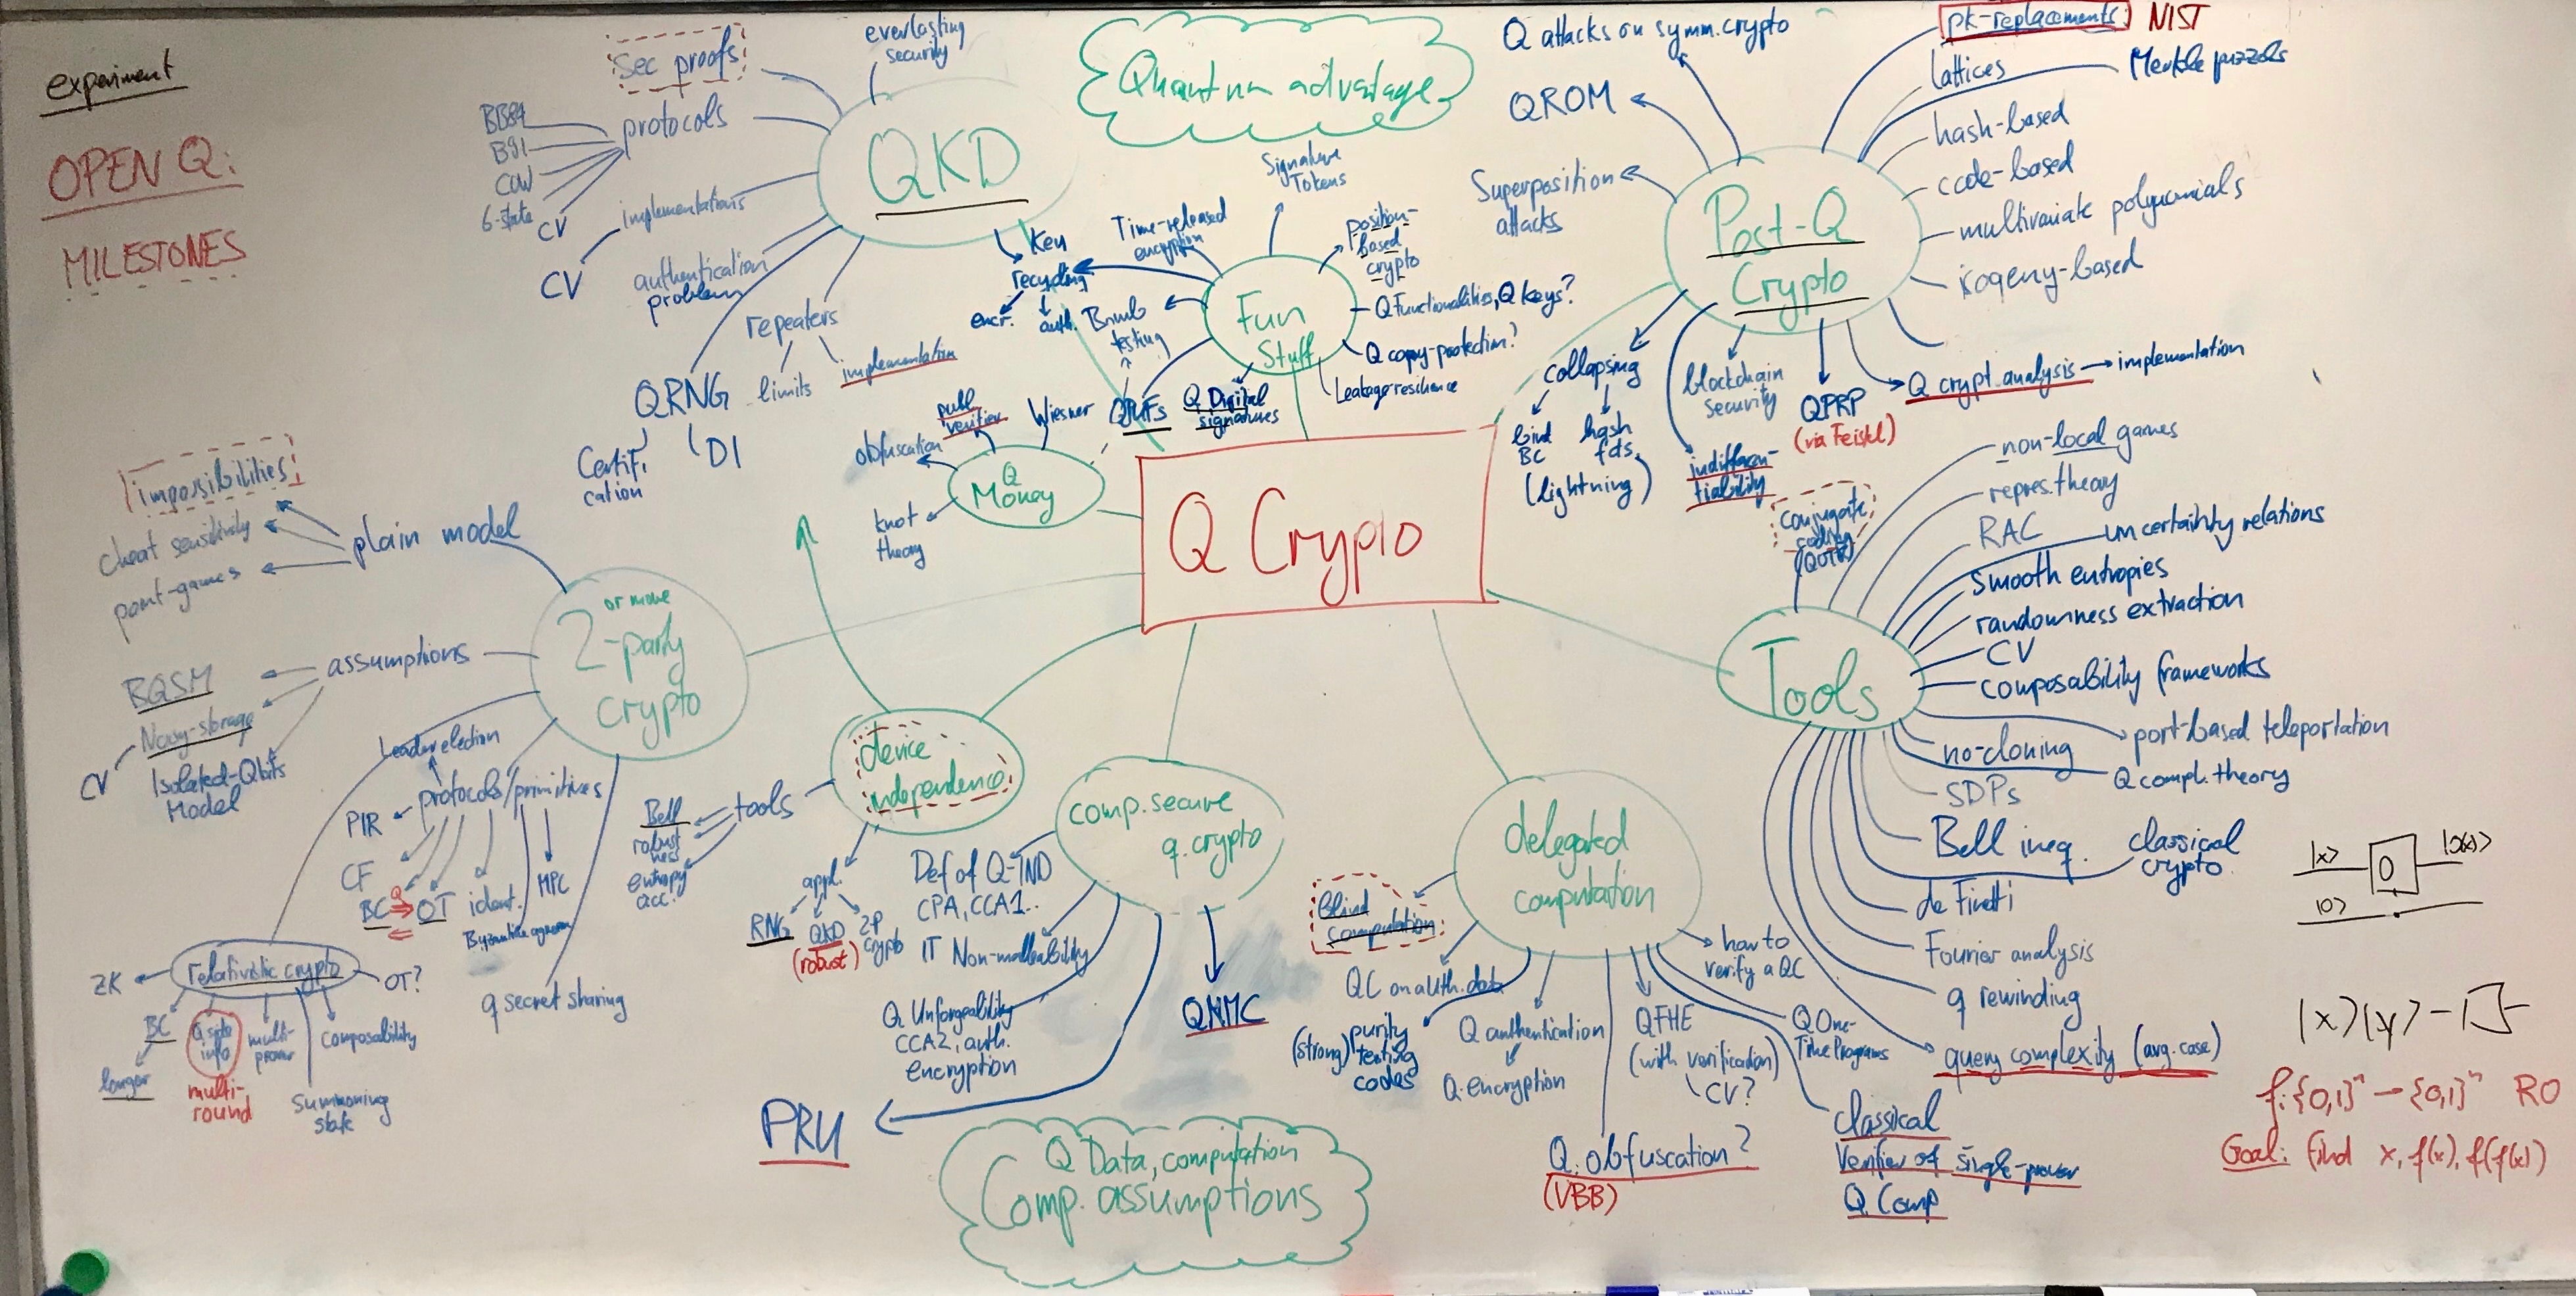 experiment
OPEN Q:
MILESTONES
Sec proofs
everlasting
security
protocols
BB84
B91
COW
6-state
CV
implementations
CV
authentication
problem
repeaters
limits
implementation
QRNG
Certifi
cation
DI
QKD
Key
recycling
encr.
auth.
Quantum advantage
Signature
Tokens
Time-released
encryption
position-
based
crypto
Fun
Stuff
Bomb
testing
Q Functionalities, Q keys?
Q copy-protection?
Leakage resilience
QPUFs
Q Digital
signatures
Q
Money
publ.
verifier
Wiesner
obfuscation
knot
theory
Q Crypto
Q attacks on symm. crypto
QROM
Superposition
attacks
Post-Q
Crypto
pk-replacements
NIST
lattices
Merkle puzzels
hash-based
code-based
multivariate polynomials
isogeny-based
Q crypt analysis
implementation
QPRP
(via Feistel)
blockchain
security
indifferen-
tiability
collapsing
bind
BC
hash
fcts.
(lightning)
Tools
conjugate
coding
(QOTP)
non-local games
repres. theory
RAC
uncertainty relations
smooth entropies
randomness extraction
CV
composability frameworks
port-based teleportation
no-cloning
Q compl. theory
SDPs
Bell ineq.
classical
crypto
de Finetti
Fourier analysis
q rewinding
query complexity (avg. case)
|x>
O
|O(x)>
|0>
|x>|y>
f: {0,1}ⁿ → {0,1}ⁿ RO
Goal: find x, f(x), f(f(x))
impossibilities
cheat sensitivity
point-games
plain model
or more
2-party
crypto
assumptions
BQSM
Noisy-storage
CV
Isolated-Qbits
Model
Leader election
protocols/primitives
PIR
CF
BC
Q
OT
ident.
MPC
Byzantine agreem
q secret sharing
relativistic crypto
ZK
OT?
BC
longer
Q side
info
multi-
round
multi-
prover
composability
summoning
state
device
independence
tools
Bell
robust
ness
entropy
acc.
appl.
RNG
QKD
(robust)
2P
crypto
comp. secure
q. crypto
Def of Q-IND
CPA, CCA1..
IT Non-malleability
Q Unforgeability
CCA2, auth.
encryption
QHMC
PRU
Q Data, computation
Comp. assumptions
delegated
computation
Blind
computation
QC on auth. data
(strong) purity
testing
codes
Q authentication
Q. encryption
QFHE
(with verification)
CV?
how to
verify a QC
Q One-
Time Programs
Q. obfuscation?
(VBB)
classical
Verifier of single-prover
Q. Comp